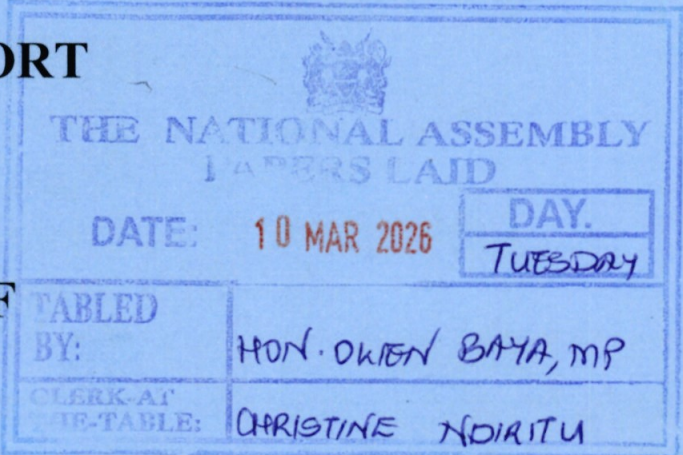 ORT
THE NATIONAL ASSEMBLY
PAPERS LAID
DATE: 10 MAR 2026
DAY.
TUESDAY
F
TABLED BY: HON. OWEN BAYA, MP
CLERK-AT THE-TABLE: CHRISTINE NDIRITU